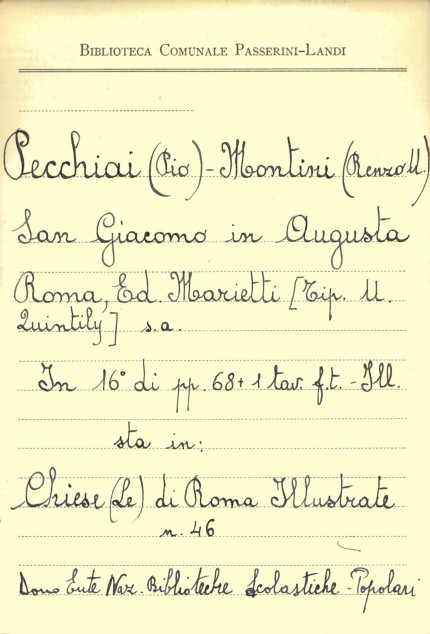 BIBLIOTECA COMUNALE PASSERINI-LANDI
Pecchiai (Pio) - Montini (Renzo U.)
San Giacomo in Augusta
Roma, Ed. Marietti [Tip. U.
Quintily] s.a.
In 16° di pp. 68+1 tav. f.t. - Ill.
sta in:
Chiese (Le) di Roma Illustrate
n. 46
Dono Ente Naz. Biblioteche Scolastiche - Popolari